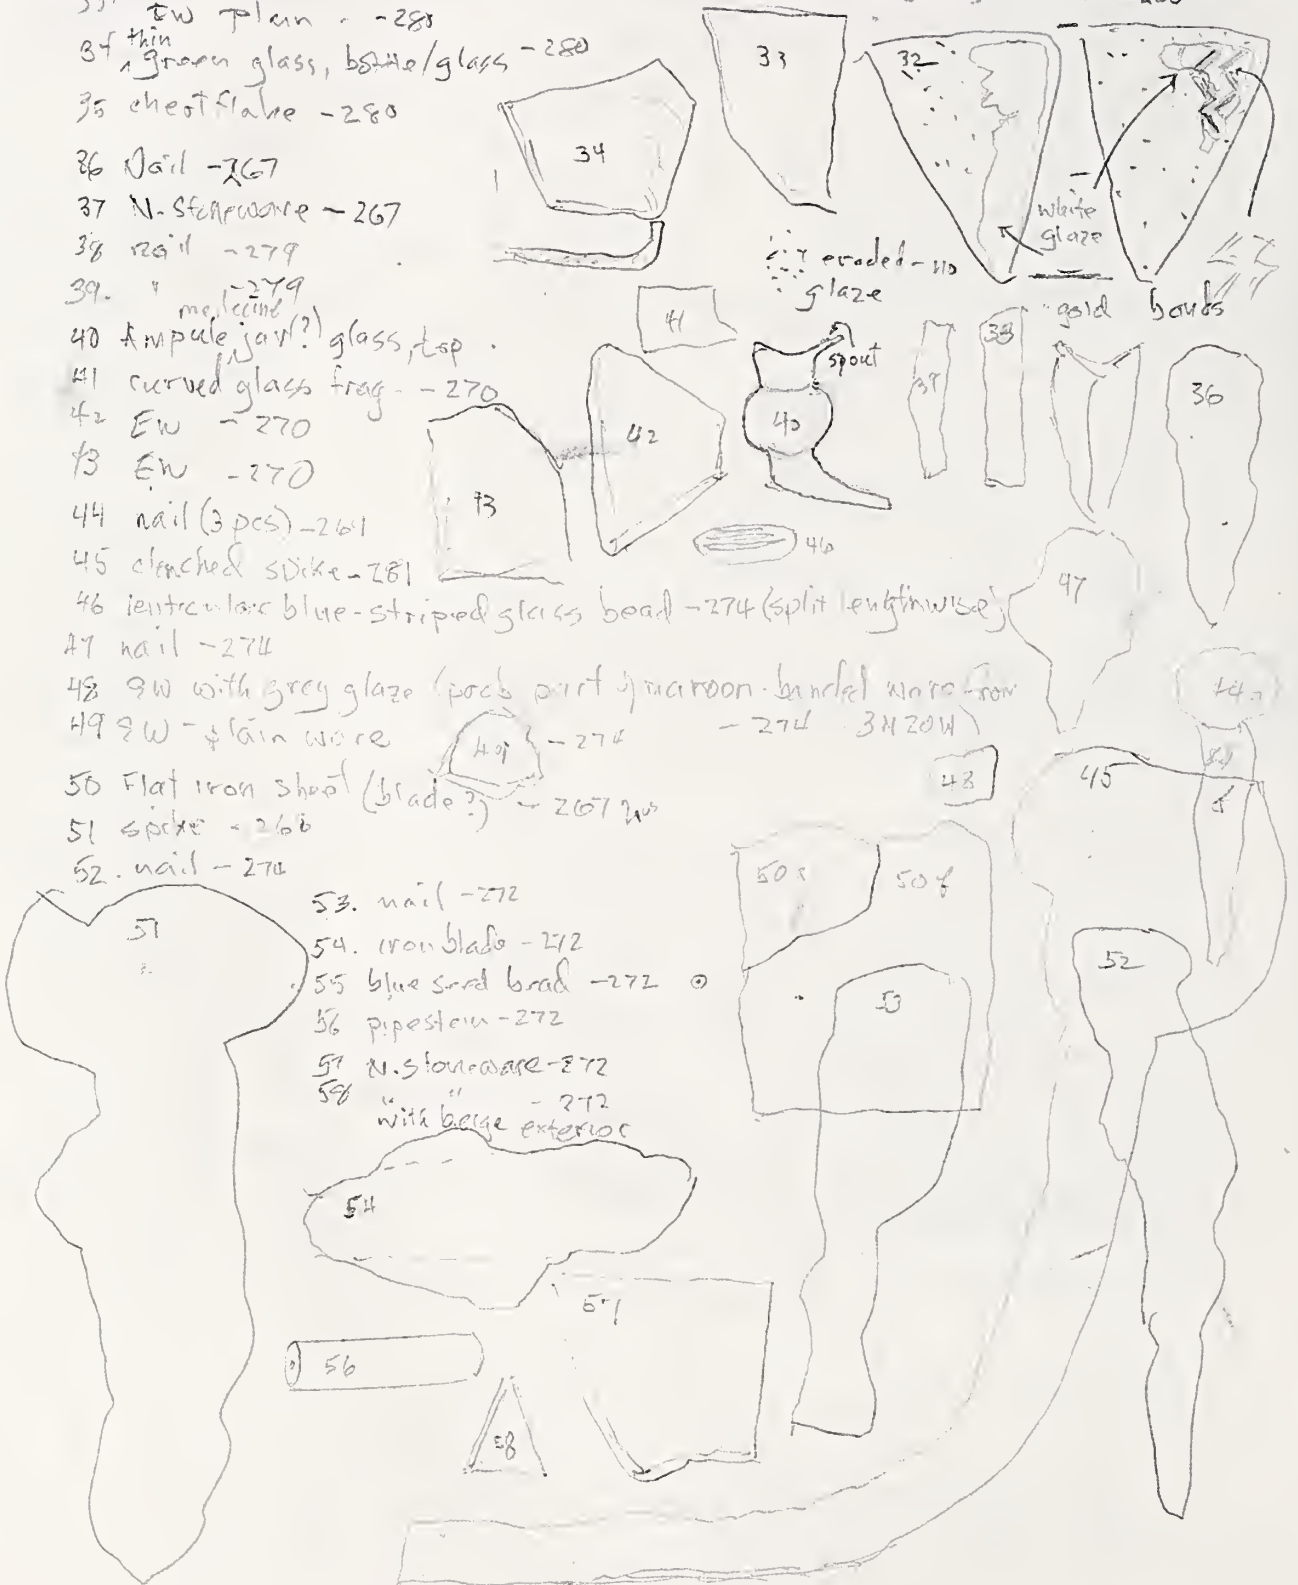 33. EW plain - -280
34 thin green glass, bottle/glass -280
35 chert flake -280
36 Nail -267
37 N. Stoneware - 267
38 nail -279
39. " -279
medicine
40 Ampule, jar(?) glass, top.
41 curved glass frag - -270
42 EW - 270
43 EW -270
44 nail (3 pcs) -264
45 clenched spike -281
46 lenticular blue-striped glass bead -274 (split lengthwise)
47 nail -274
48 SW with grey glaze (prob part of maroon-banded ware from
- 274 3N20W)
49 SW - plain ware - 274
50 Flat iron sheet (blade?) - 267
51 spike - 268
52. nail - 274
53. nail -272
54. iron blade -272
55 blue seed bead -272
56 pipestem -272
57 N. stoneware -272
58 " " - 272
with beige exterior
33
32
34
white
glaze
eroded - no
glaze
gold bands
41
spout
39
38
36
40
42
43
46
47
44
49
48
45
50
50
51
52
53
54
57
56
58